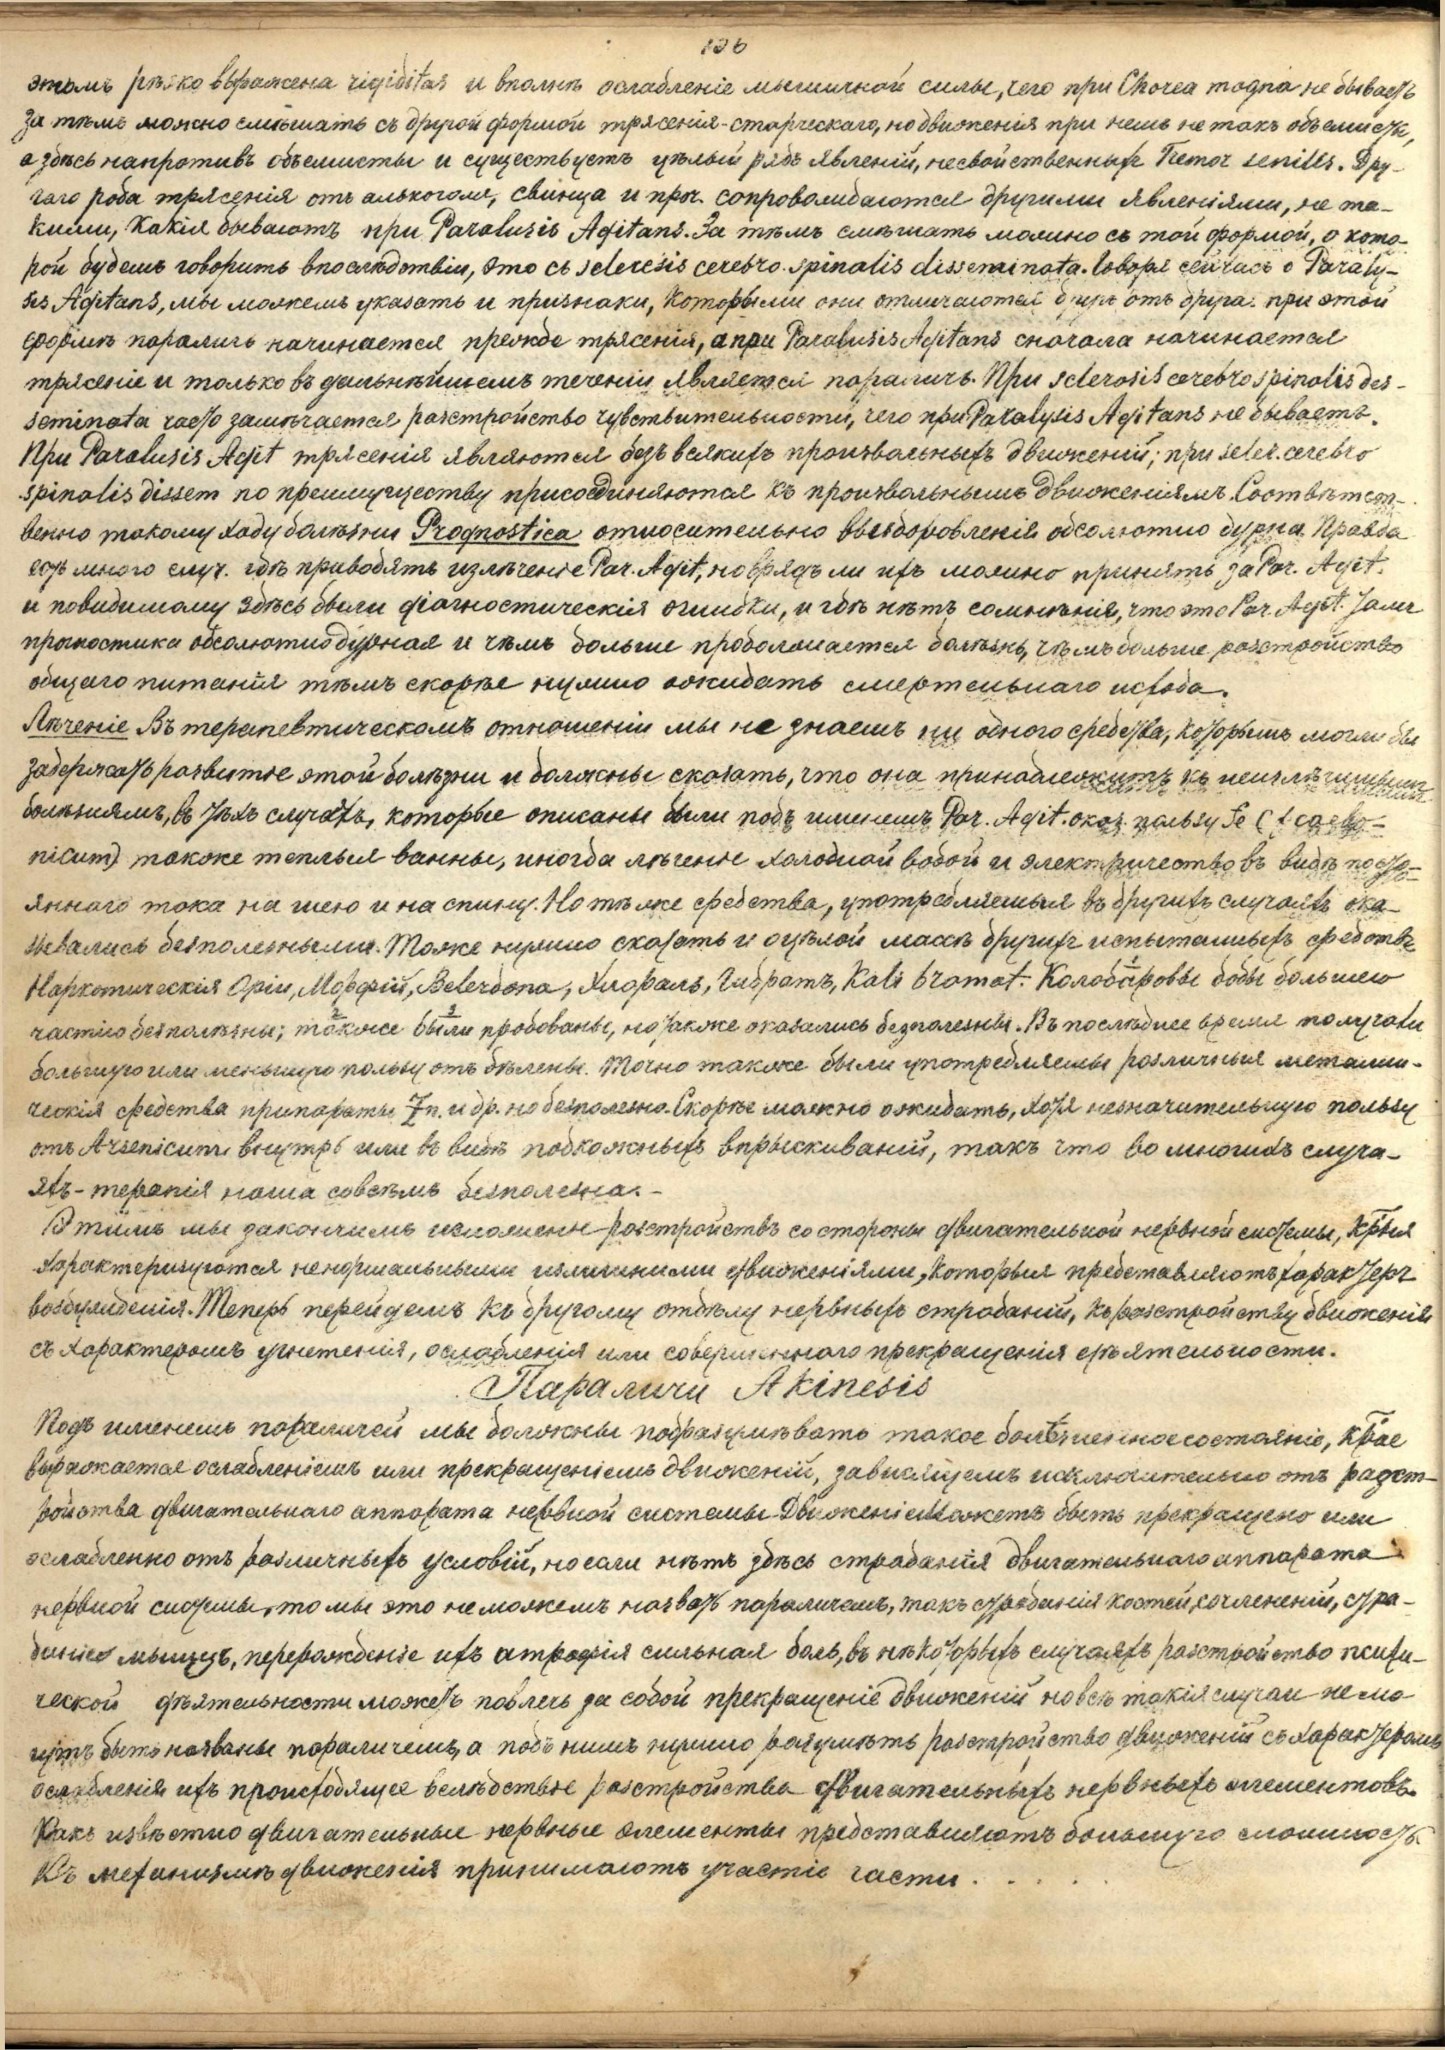 126
этомъ рѣзко выражена rigiditas и вполнѣ ослабленіе мышичной силы, чего при Chorea magna не бываетъ
За тѣмъ можно смѣшать съ другой формой трясенія-старческаго, но движенія при немъ не такъ объемисты,
а здѣсь напротивъ объемисты и существуетъ цѣлый рядъ явленій, несвойственныхъ Tremor senilis. Дру-
гаго рода трясенія отъ алькоголя, свинца и проч. сопровождаются другими явленіями, не та-
кими, какія бываютъ при Paralusis Agitans. За тѣмъ смѣшать можно съ той формой, о кото-
рой будемъ говорить впослѣдствіи, это съ sclerosis cerebro-spinalis disseminata. Говоря сейчасъ о Paraly-
sis Agitans, мы можемъ указать и признаки, которыми они отличаются другъ отъ друга. при этой
формѣ параличъ начинается прежде трясенія, а при Paralusis Agitans сначала начинается
трясеніе и только въ дальнѣйшемъ теченіи является параличъ. При sclerosis cerebro spinalis des-
seminata часто замѣчается разстройство чувствительности, чего при Paralysis Agitans не бываетъ.
При Paralusis Agit трясенія являются безъ всякихъ произвольныхъ движеній; при scler. cerebro
spinalis dissem по преимуществу присоединяются къ произвольнымъ движеніямъ. Соотвѣтст-
венно такому ходу болѣзни Prognostica относительно выздоровленія абсолютно дурна. Правда
есть много случ. гдѣ приводятъ излѣченіе Par. Agit, но врядъ ли ихъ можно принять за Par. Agit.
и повидимому здѣсь были діагностическія ошибки, и гдѣ нѣтъ сомнѣнія, что это Par. Agit. тамъ
прогностика абсолютно дурная и чѣмъ больше продолжается болѣзнь, чѣмъ больше разстройство
общаго питанія тѣмъ скорѣе нужно ожидать смертельнаго исхода.
Лѣченіе Въ терапевтическомъ отношеніи мы не знаемъ ни одного средства, которымъ могли бы
задержать развитіе этой болѣзни и должны сказать, что она принадлежитъ къ неизлѣчимымъ
болѣзнямъ, въ тѣхъ случаяхъ, которые описаны были подъ именемъ Par. Agit. оказ. пользу Fe (f. carbo-
nicum) также теплыя ванны, иногда лѣченіе холодной водой и электричество въ видѣ посто-
яннаго тока на шею и на спину. Но тѣже средства, употребляемыя въ другихъ случаяхъ ока-
зывались безполезными. Тоже нужно сказать и о цѣлой массѣ другихъ испытанныхъ средствъ
Наркотическія Opiи, Морфій, Beleadona, Хлоралъ, Гидратъ, Kali bromat. Калабаровы бобы большею
частію безполѣзны; также были пробованы, но также оказались безполезны. Въ послѣднее время получали
большую или меньшую пользу отъ бѣлены. Точно также были употребляемы различныя металли-
ческія средства припараты Zn. и др. но безполезно. Скорѣе можно ожидать, хотя незначительную пользу
отъ Arsenicum внутрь или въ видѣ подкожныхъ впрыскиваній, такъ что во многихъ случа-
яхъ - терапія наша совсѣмъ безполезна. -
Этимъ мы закончимъ изложеніе разстройствъ со стороны двигательной нервной системы, кѣрыя
характеризуются ненормальными излишними движеніями, которыя представляютъ характеръ
возбужденія. Теперь перейдемъ къ другому отдѣлу нервныхъ страданій, къ разстройству движенія
съ характеромъ угнетенія, ослабленія или совершеннаго прекращенія дѣятельности.
Параличи Akinesis
Подъ именемъ параличей мы должны подразумѣвать такое болѣзненное состояніе, кѣрое
выражается ослабленіемъ или прекращеніемъ движеній, зависящемъ исключительно отъ разст-
ройства двигательнаго аппарата нервной системы. Движеніе можетъ быть прекращено или
ослабленно отъ различныхъ условій, но если нѣтъ здѣсь страданія двигательнаго аппарата
нервной системы, то мы это не можемъ назвать параличемъ, такъ страданія костей, сочлененій, стра-
даніе мышцъ, перерожденіе ихъ атрофія сильная боль, въ нѣкоторыхъ случаяхъ разстройство психи-
ческой дѣятельности можетъ повлечь за собой прекращеніе движеній но всѣ такія случаи не мо-
гутъ быть названы параличемъ, а подъ нимъ нужно разумѣть разстройство движеній съ характеромъ
ослабленія ихъ происходящее вслѣдствіе разстройства двигательныхъ нервныхъ элементовъ.
Какъ извѣстно двигательные нервные элементы представляютъ большую сложность.
Къ механизмѣ движенія принимаютъ участіе части . . . . .